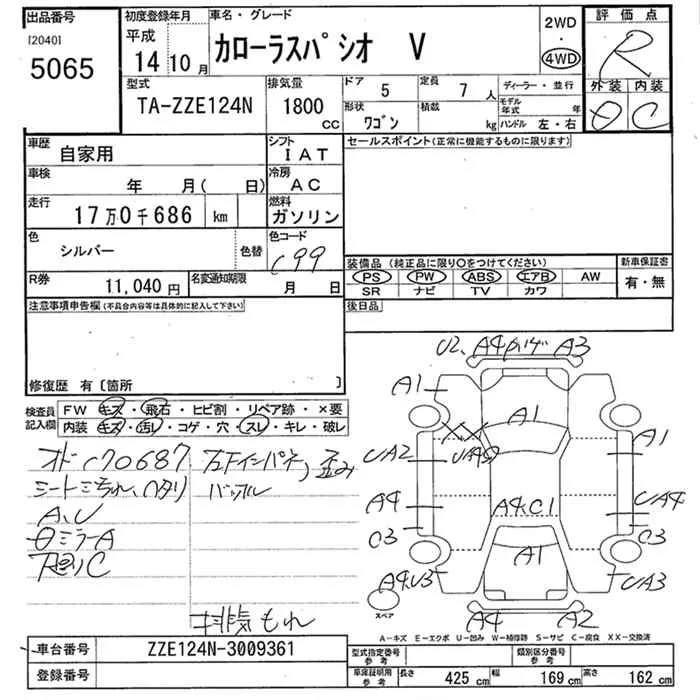 出品番号
[2040]
5065
初度登録年月
平成
14年10月
車名・グレード
カローラスパシオ V
2WD
・
4WD
評価点
R
外装 内装
C
型式
TA-ZZE124N
排気量
1800
CC
ドア 5
定員 7人
形状 ワゴン
積載 kg
ディーラー・並行
モデル年式 年
ハンドル 左・右
車歴
自家用
シフト
IAT
車検
年 月( 日)
冷房
AC
走行
17万0千686 km
燃料
ガソリン
色
シルバー
色替
色コード
C99
R券
11,040円
名変通知期限
月 日
セールスポイント(正常に機能するものに限ります)
装備品(純正品に限り○をつけてください)
新車保証書
PS PW ABS エアB AW
SR ナビ TV カワ
有・無
後日品
注意事項申告欄(不具合内容等は具体的に記入して下さい)
修復歴 有〔箇所 〕
検査員記入欄
FW キズ・飛石・ヒビ割・リペア跡・×要
内装 キズ・汚レ・コゲ・穴・スレ・キレ・破レ
オドC70687
A、U
ミラーA
C
左Fインパネ、歪み
排気もれ
U2、A4 A3
A1
A1
A1
UA2
UA4
A4
A4.C1
C3
C3
A1
A4.U3
UA3
スペア
A4 A2
A-キズ E-エクボ U-凹み W-補修跡 S-サビ C-腐食 XX-交換済
車台番号
ZZE124N-3009361
登録番号
型式指定番号
参考
類別区分番号
参考
車庫証明用
参考
長さ 425cm
幅 169cm
高さ 162cm